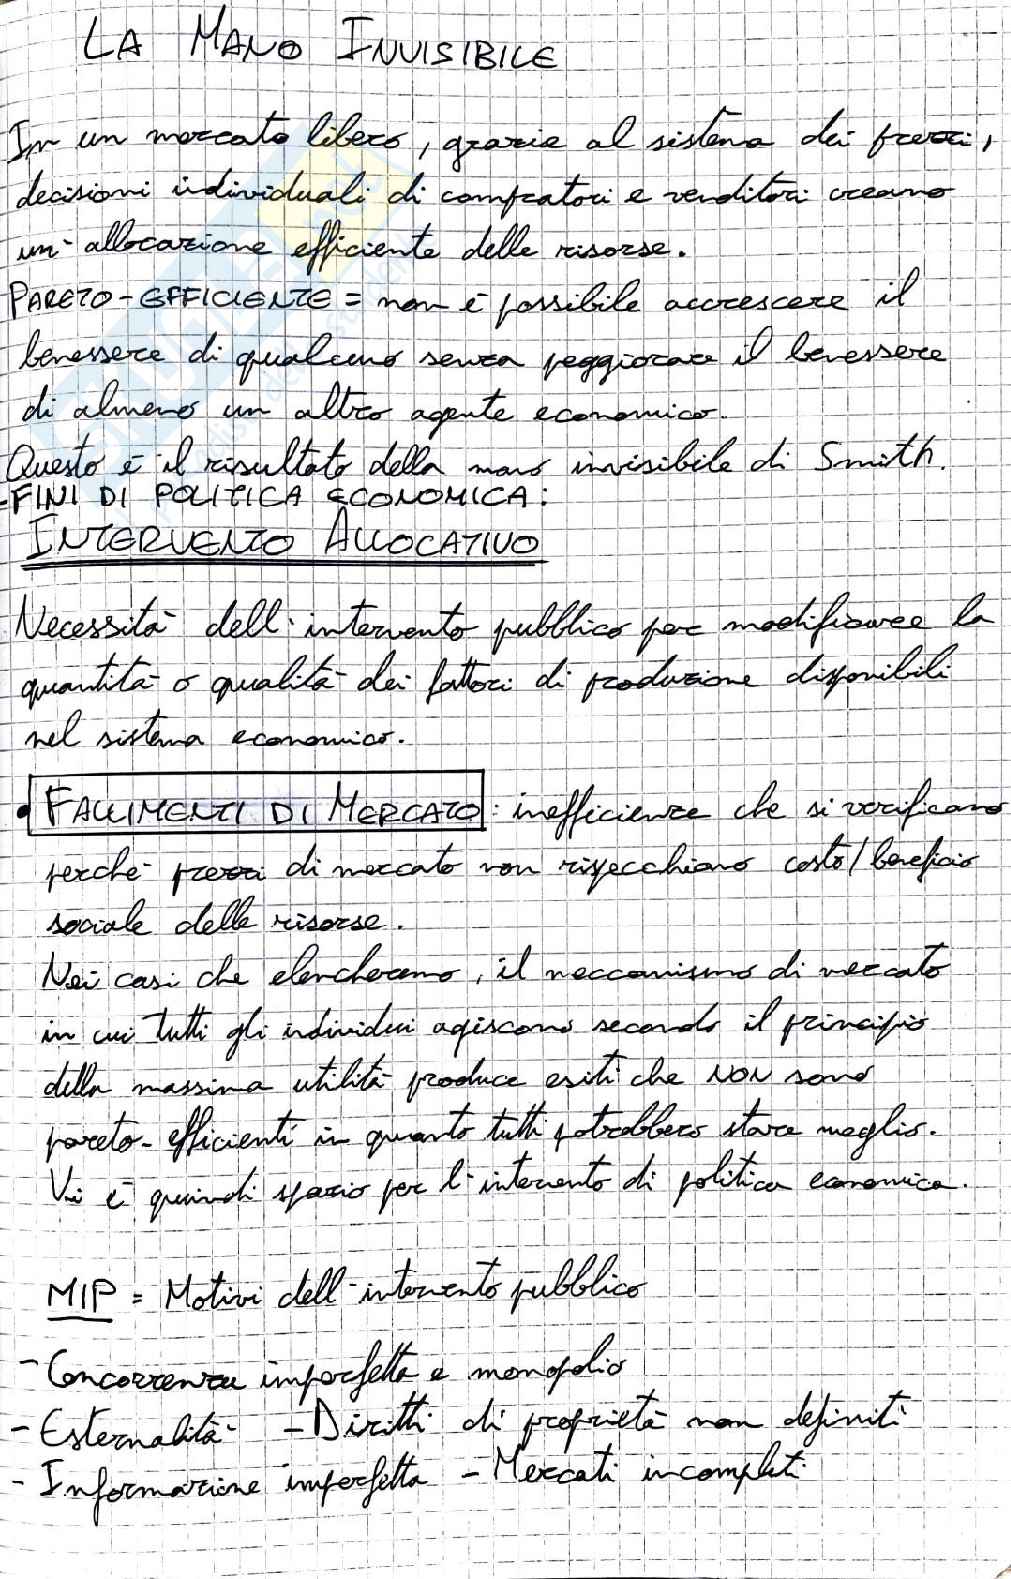 LA MANO INVISIBILE
In un mercato libero, grazie al sistema dei prezzi,
decisioni individuali di compratori e venditori creano
un' allocazione efficiente delle risorse.
PARETO-EFFICIENTE = non è possibile accrescere il
benessere di qualcuno senza peggiorare il benessere
di almeno un altro agente economico.
Questo è il risultato della mano invisibile di Smith.
-FINI DI POLITICA ECONOMICA:
INTERVENTO ALLOCATIVO
Necessità dell'intervento pubblico per modificare la
quantità o qualità dei fattori di produzione disponibili
nel sistema economico.
• FALLIMENTI DI MERCATO: inefficienze che si verificano
perché prezzi di mercato non rispecchiano costo/beneficio
sociale delle risorse.
Nei casi che elencheremo, il meccanismo di mercato
in cui tutti gli individui agiscono secondo il principio
della massima utilità produce esiti che NON sono
pareto-efficienti in quanto tutti potrebbero stare meglio.
Vi è quindi spazio per l'intervento di politica economica.
MIP = Motivi dell'intervento pubblico
- Concorrenza imperfetta e monopolio
- Esternalità - Diritti di proprietà non definiti
- Informazione imperfetta - Mercati incompleti